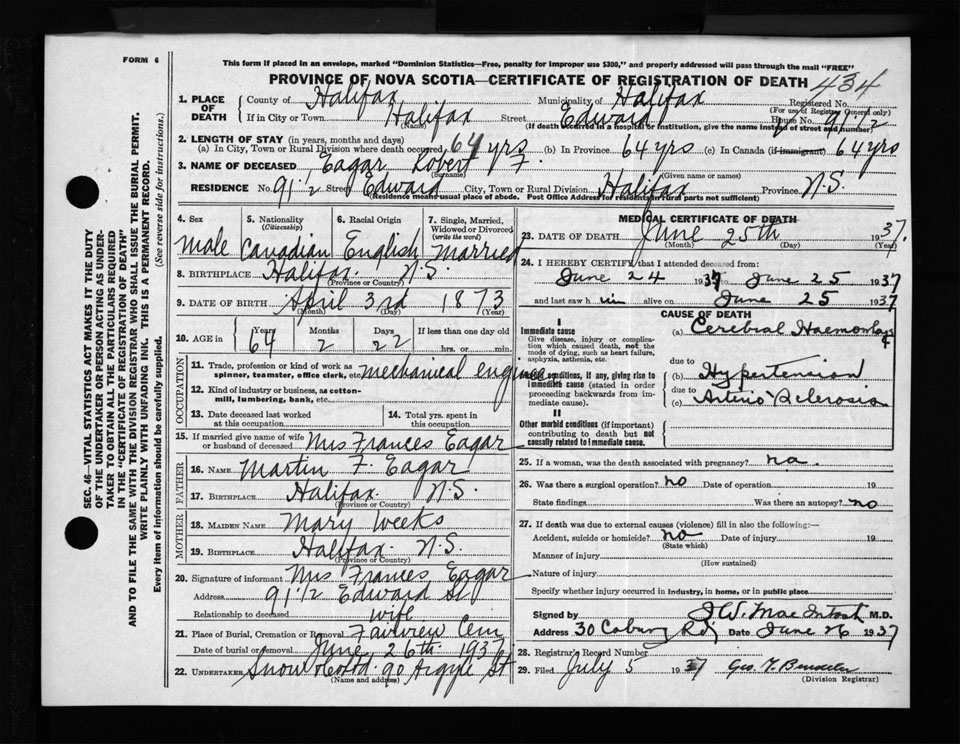 FORM 6
This form if placed in an envelope, marked "Dominion Statistics—Free, penalty for improper use $300," and properly addressed will pass through the mail "FREE"
PROVINCE OF NOVA SCOTIA—CERTIFICATE OF REGISTRATION OF DEATH 434
SEC. 46—VITAL STATISTICS ACT MAKES IT THE DUTY
OF THE UNDERTAKER OR PERSON ACTING AS UNDER-
TAKER TO OBTAIN ALL THE PARTICULARS REQUIRED
IN THE "CERTIFICATE OF REGISTRATION OF DEATH"
AND TO FILE THE SAME WITH THE DIVISION REGISTRAR WHO SHALL ISSUE THE BURIAL PERMIT.
WRITE PLAINLY WITH UNFADING INK. THIS IS A PERMANENT RECORD.
Every item of information should be carefully supplied. (See reverse side for instructions.)
1. PLACE OF DEATH
County of Halifax Municipality of Halifax Registered No.
(For use of Registrar General only)
If in City or Town Halifax Street Edward House No. 91 1/2
(Name) (If death occurred in a hospital or institution, give the name instead of street and number)
2. LENGTH OF STAY (in years, months and days)
(a) In City, Town or Rural Division where death occurred 64 yrs (b) In Province 64 yrs (c) In Canada (if immigrant) 64 yrs
3. NAME OF DECEASED Eagar Robert F.
(Surname) (Given name or names)
RESIDENCE No. 91 1/2 Street Edward City, Town or Rural Division Halifax Province N.S.
(Residence means usual place of abode. Post Office Address for residents in rural parts not sufficient)
4. Sex
Male
5. Nationality
(Citizenship)
Canadian
6. Racial Origin
English
7. Single, Married,
Widowed or Divorced
(write the word)
Married
8. BIRTHPLACE Halifax. N.S.
(Province or Country)
9. DATE OF BIRTH April 3rd 1873
(Month) (Day) (Year)
10. AGE in
Years Months Days If less than one day old
64 2 22 hrs. or min.
OCCUPATION
11. Trade, profession or kind of work as
spinner, teamster, office clerk, etc. mechanical engineer
12. Kind of industry or business, as cotton-
mill, lumbering, bank, etc.
13. Date deceased last worked
at this occupation
14. Total yrs. spent in
this occupation
15. If married give name of wife
or husband of deceased Mrs Frances Eagar
FATHER
16. NAME Martin F. Eagar
17. BIRTHPLACE Halifax. N.S.
(Province or Country)
MOTHER
18. MAIDEN NAME Mary Weeks
19. BIRTHPLACE Halifax. N.S.
(Province or Country)
20. Signature of informant Mrs Frances Eagar
Address 91 1/2 Edward St
Relationship to deceased wife
21. Place of Burial, Cremation or Removal Fairview Cem
Date of burial or removal June 26th 1937
22. UNDERTAKER Snow &amp; Co Ltd 90 Argyle St
(Name and address)
MEDICAL CERTIFICATE OF DEATH
23. DATE OF DEATH June 25th 1937.
(Month) (Day) (Year)
24. I HEREBY CERTIFY that I attended deceased from:
June 24 1937 June 25 1937
and last saw him alive on June 25 1937
CAUSE OF DEATH
I
Immediate cause (a) Cerebral Haemorrhage
Give disease, injury or complica-
tion which caused death, not the
mode of dying, such as heart failure,
asphyxia, asthenia, etc.
due to
conditions, if any, giving rise to
immediate cause (stated in order
proceeding backwards from im-
mediate cause).
(b) Hypertension
due to
(c) Arterio Sclerosis
II
Other morbid conditions (if important)
contributing to death but not
causally related to immediate cause.
25. If a woman, was the death associated with pregnancy? no.
26. Was there a surgical operation? no Date of operation 19
State findings Was there an autopsy? no
27. If death was due to external causes (violence) fill in also the following:—
Accident, suicide or homicide? no Date of injury 19
(State which)
Manner of injury
(How sustained)
Nature of injury
Specify whether injury occurred in industry, in home, or in public place
Signed by W. MacIntosh M.D.
Address 30 Coburg Rd Date June 26 1937
28. Registrar's Record Number
29. Filed July 5 1937 Geo.
(Division Registrar)